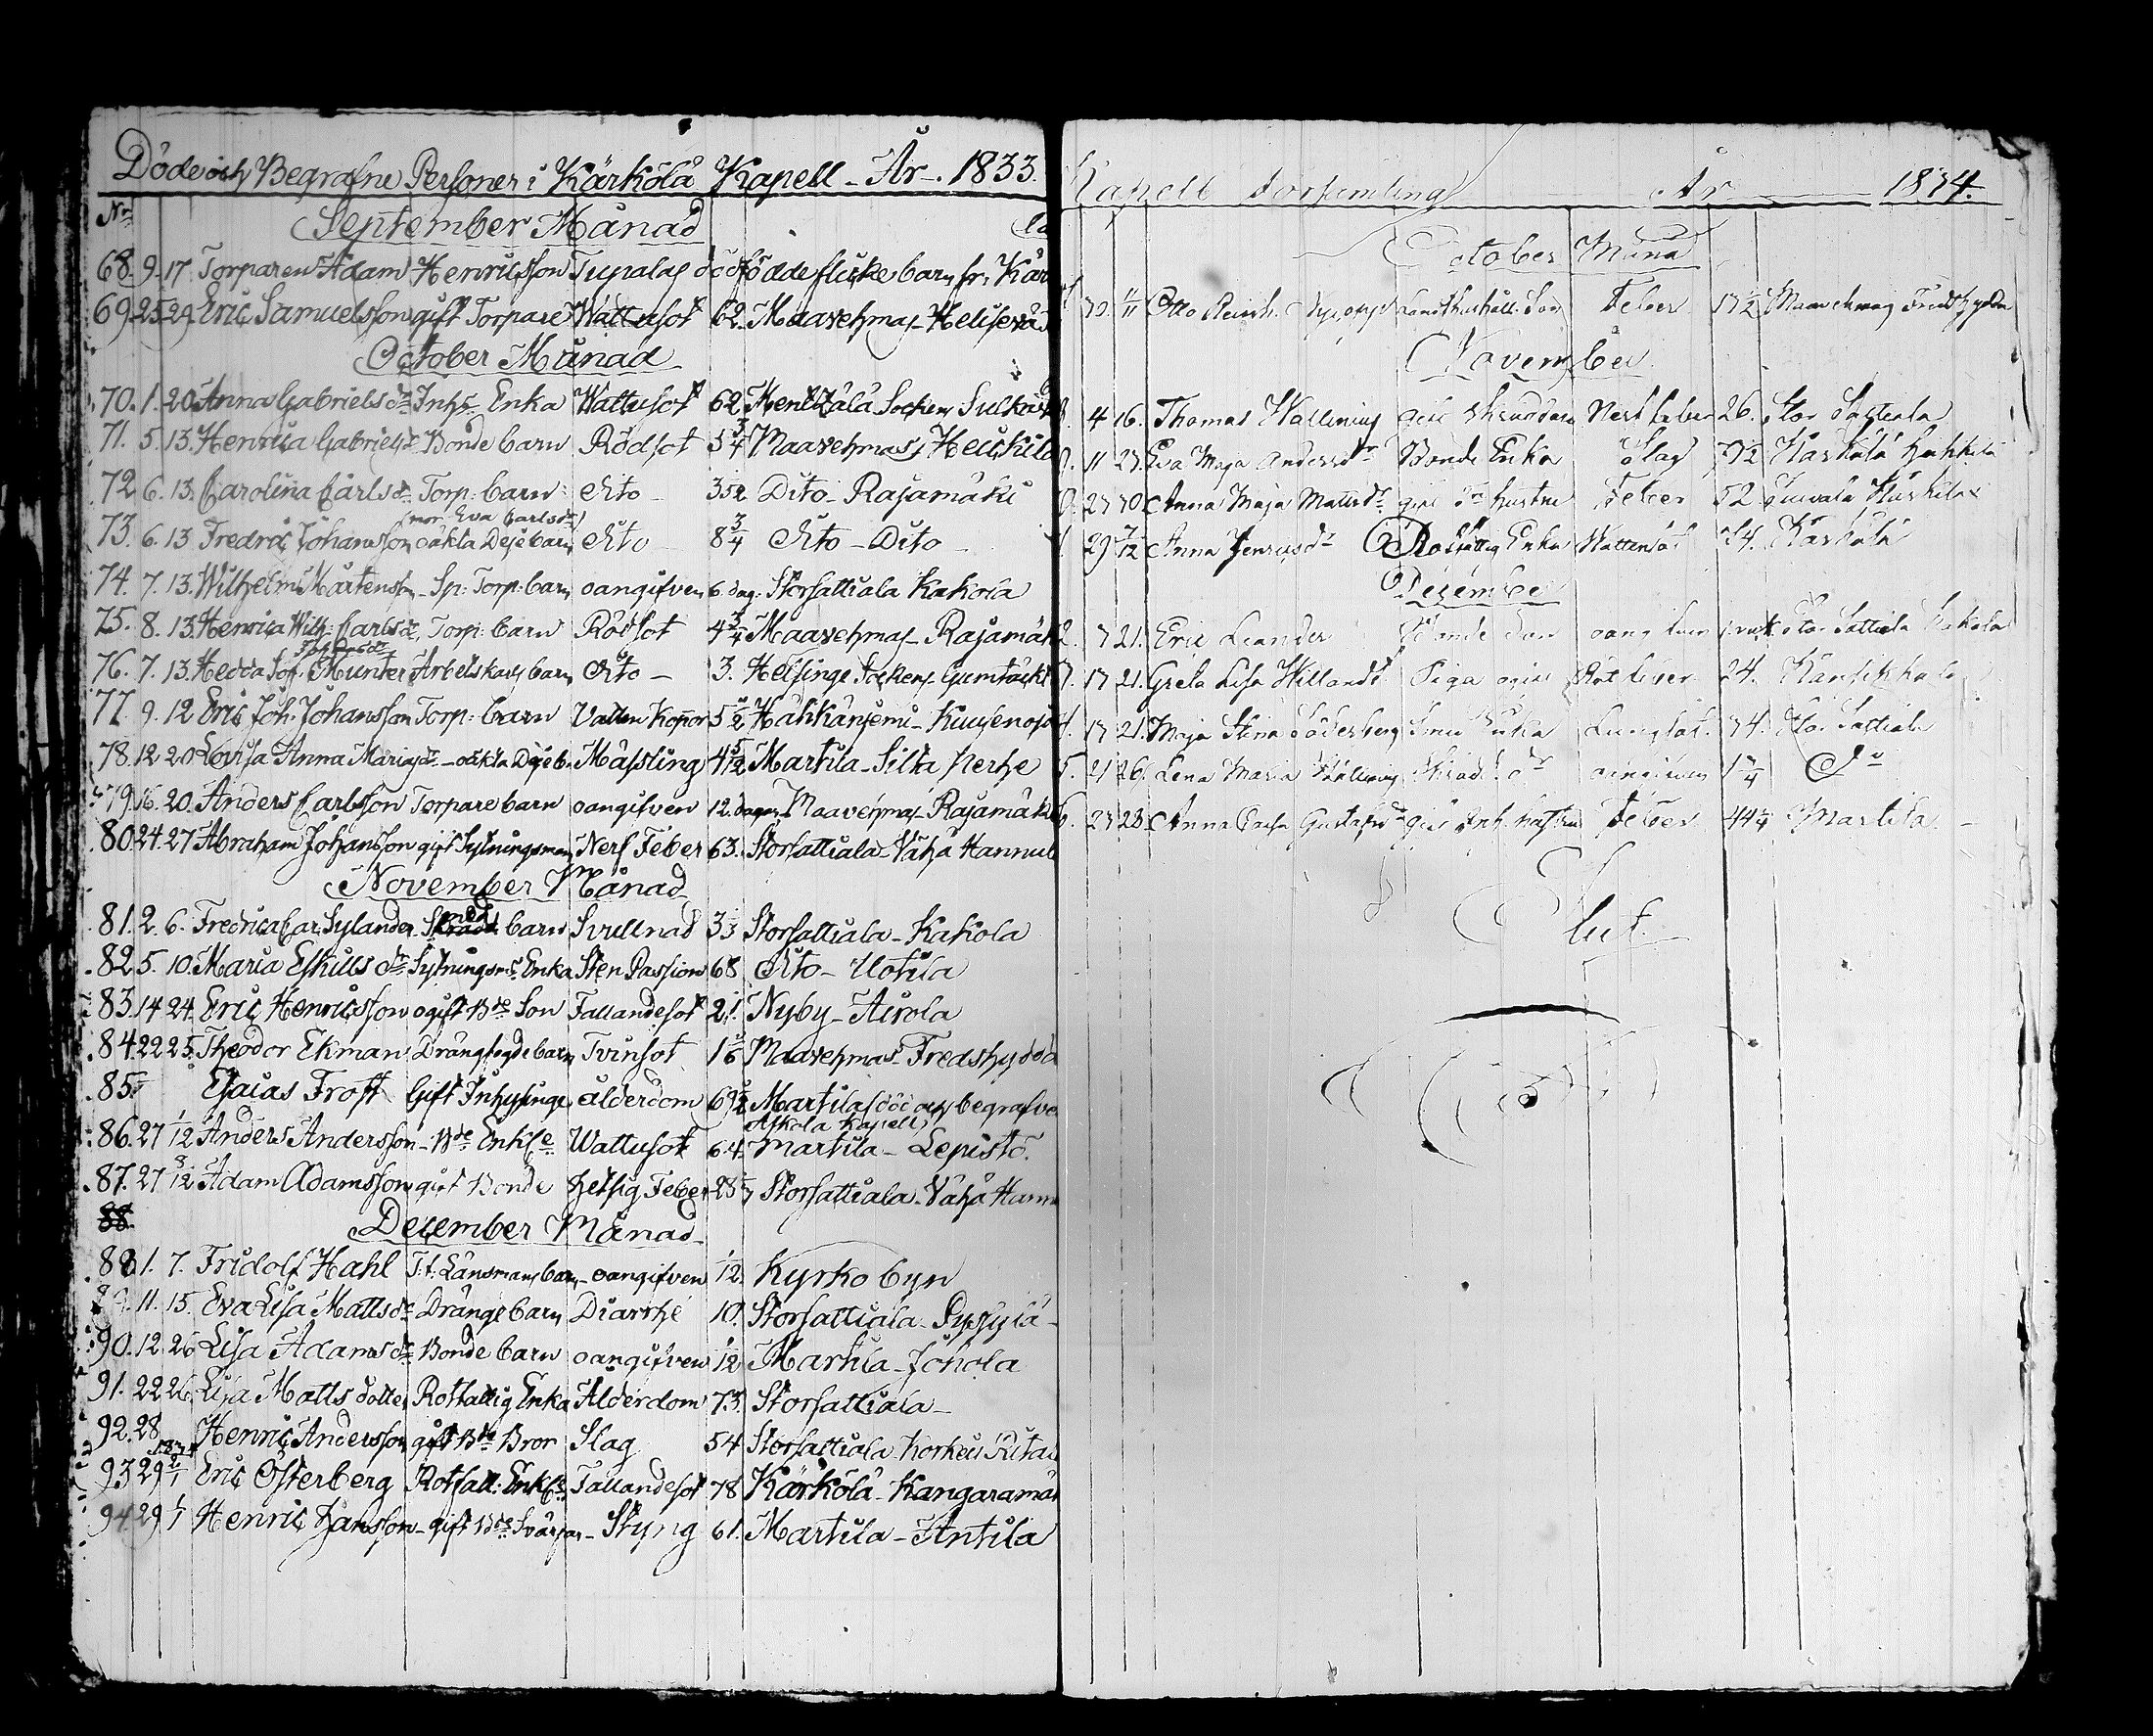 Döde och Begrafne Personer i Kärkölä Kapell - År - 1833.
No
September Månad
68. 9. 17. Torparen Adam Henricsson dödfödde flicke barn fr. Kär
69. 25. 29. Eric Samuelsson gift Torpare Wattusot 62. Maavehmas - Heliseva
October Månad
70. 1. 20. Anna Gabrielsdr Inhs Enka Wattusot 62 Socken
71. 5. 13. Henrica Gabrielsdr Bonde barn Rödsot 5 3/4 Maavehmas Heickilä
72. 6. 13. Carolina Carlsdr Torp: barn Dito - Dito - Rajamäki
(mor Eva Carlsdr)
73. 6. 13 Fredric Johansson oäkta Deje barn Dito 8 3/4 Dito - Dito
74. 7. 13. Wilhelm Mårtensson Sp: Torp: barn oangifven 6 dag. Storsattiala Kakola
75. 8. 13. Henrica Wilh: Carlsdr Torp: barn Rödsot 4 3/4 Maavehmas - Rajamäk
76. 7. 13. Hedda Sof. Munter Arbetskarls barn Dito - 3. Helsinge Sockens Gumtäckt
77. 9. 12 Eric Joh: Johansson Torp: barn Vatten Koppor 5 Hähkäniemi - Kuusenoja
78. 12 20 Lovisa Anna Mariasdr - oäkta Deje b. Mässling 4 5/12 Martila - Silta Pertre
79. 16. 20. Anders Carlsson Torpare barn oangifven 12. dagar Maavehmas - Rajamäki
80. 24. 27 Abraham Johansson gift Sytningsman Nerf Feber 63. Storsattiala - Vähä Hannul
November Månad
81. 2. 6. Fredrica Car. Sylander Smed barn Svullnad Storsattiala - Kakola
82. 5. 10. Maria Eskilsdr Sytningsms Enka Sten Passion 68 Dito - Uotila
83. 14 24. Eric Henricsson ogift Bde Son Fallandesot 21. Nyby - Airola
84. 22 25. Theodor Ekman Drängfogde barn Tvinsot Maavehmas - Fredshydda
85. Esaias Frost Gift Inhysinge ålderdom 69 1/2 Martila (död och begrafven
Askola Kapell)
86. 27 1/12 Anders Andersson - Bde Enkl: Wattusot 64. Martila - Lepistö.
87. 27 8/12 Adam Adamsson gift Bonde Hetsig Feber Storsattiala - Vähä Hann
88.
December Månad
88. 1. 7. Fridolf Hahl T:f: Länsmans barn - oangifven 1/12. Kyrkobyn
89. 11. 15. Eva Lisa Mattsdr Dränge barn Diarrhé 10. Storsattiala - Pyssylä -
90. 12. 26 Lisa Adamsdr Bonde barn oangifven 1/12 Martila - Johola
91. 22 26. Lisa Matts dotter Rotfattig Enka Ålderdom 73. Storsattiala -
92. 28. Henric Andersson gift Bde Bror Slag 54 Storsattiala
1834
93. 29 2/1 Eric Österberg Rotfatt: Enkl: Fallandesot 78 Kärkölä - Kangaramäk
94. 29 1/1 Henric Hansson - gift Bde Svärfar - Styng 61. Martila - Antila
Kapell Församling År 1834.
October Månad
30. Otto Feber 13 1/2 Maavehmas Fredshydda
November
4 16. Thomas Wallenius Skräddare Nerf feber 26. Stor Sattiala
11 23. Eva Maja Andersdr Bonde Enka Slag Kärkölä
23 30. Anna Maja Mattsdr hustru Feber 52.
29 7/12 Anna Henricsdr Rotfattig Enka Wattusot 74. Kärkölä
Dezember
21. Eric Leander Stor Sattiala Kakola
17 21. Greta Lisa Piga Röt feber 24.
17 21. Maja Stina Söderberg Enka Lungsot 34. Stor Sattiala
5. 21 26. Lena Maria oangifven 1 3/4 Do
23 28. Anna Caisa Gustafsdr Inh. hustru Feber 44 Martila -
Slut.